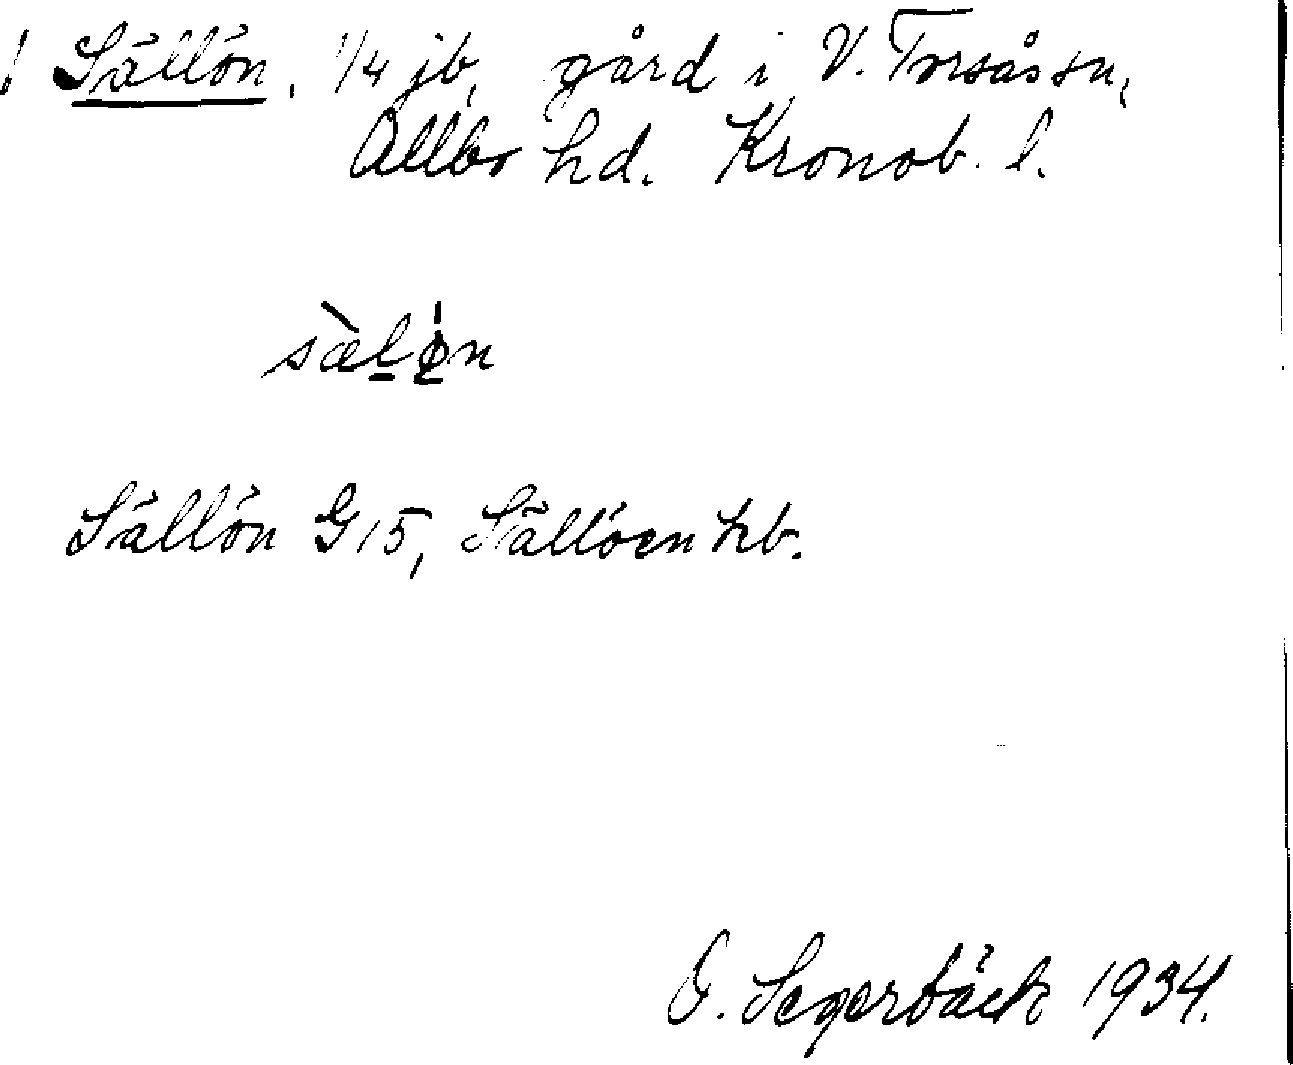 Sällön, 1/4 jb, gård i V. Torsås sn,
Allbo hd. Kronob. l.
sæløn
Sällön G15, Sällöen hb.
G. Segerbäck 1934.